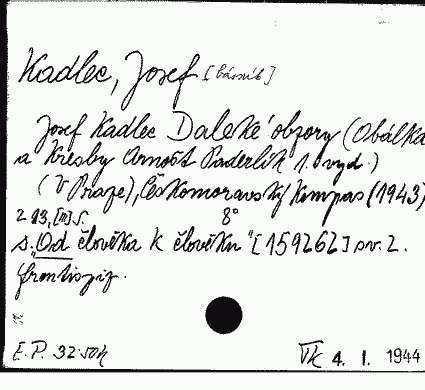 Kadlec, Josef [básník]
Josef Kadlec Daleké obzory (Obálka
a kresby Arnošt Paderlík 1. vyd.)
(V Praze), Českomoravský Kompas (1943)
213, [III] s. 8°
s. „Od člověka k člověku" [159262] sv. 2.
frontispiz.
E. P. 32.50h VK 4. I. 1944